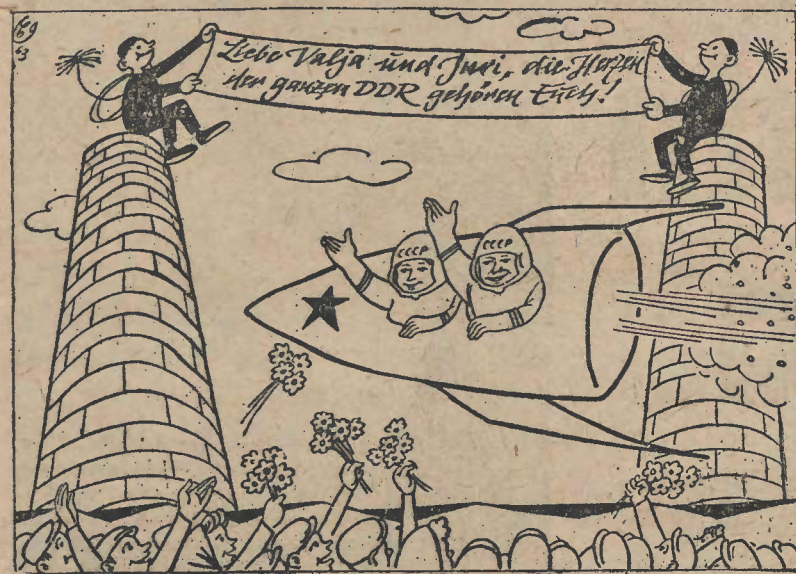 Liebe Valja und Juri, die Herzen
der ganzen DDR gehören Euch!
CCCP
CCCP
63